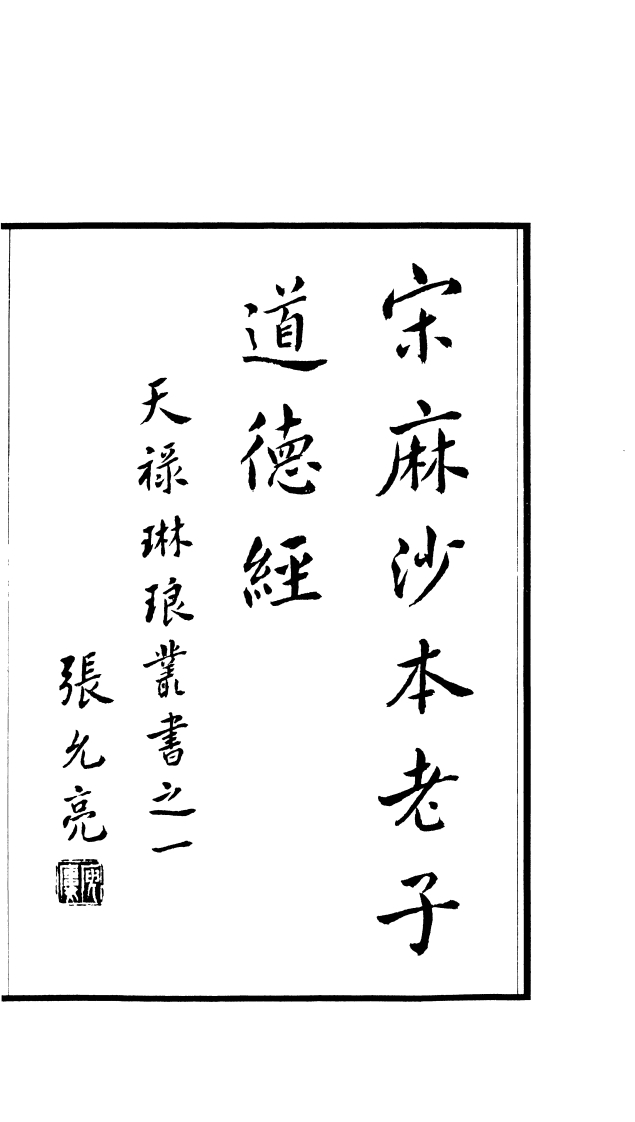 宋麻沙本老子
道德經
天祿琳琅叢書之一
張允亮